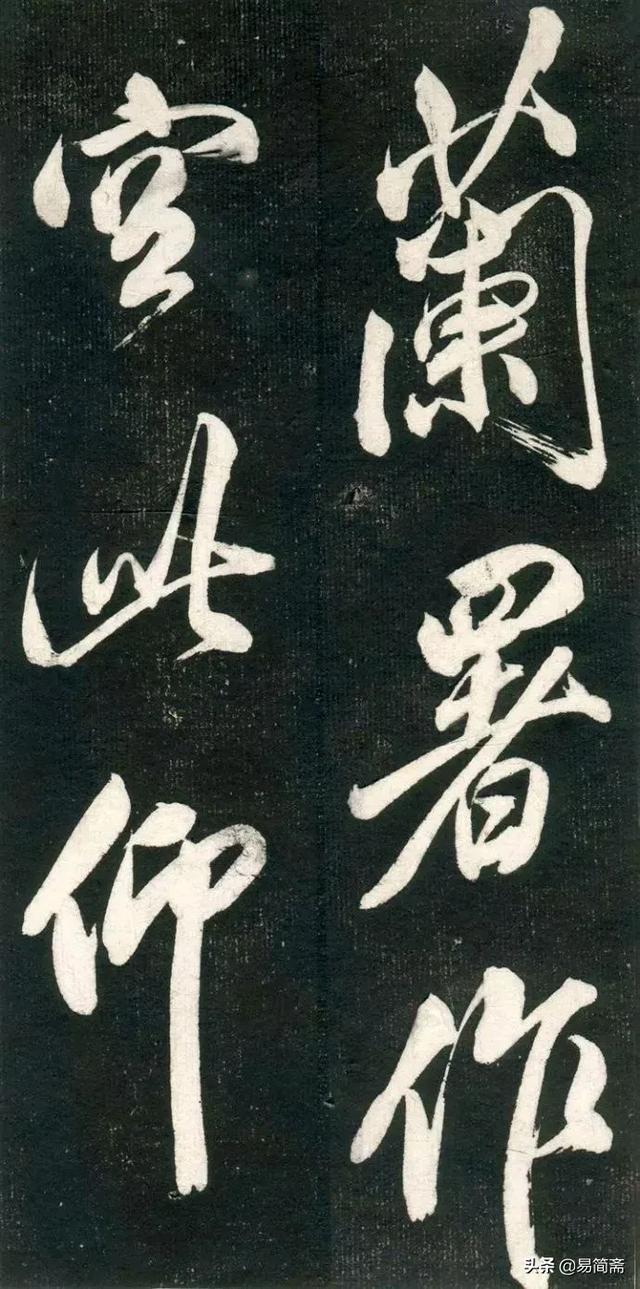 蘭署作
宫此仰
头条 @易简斋